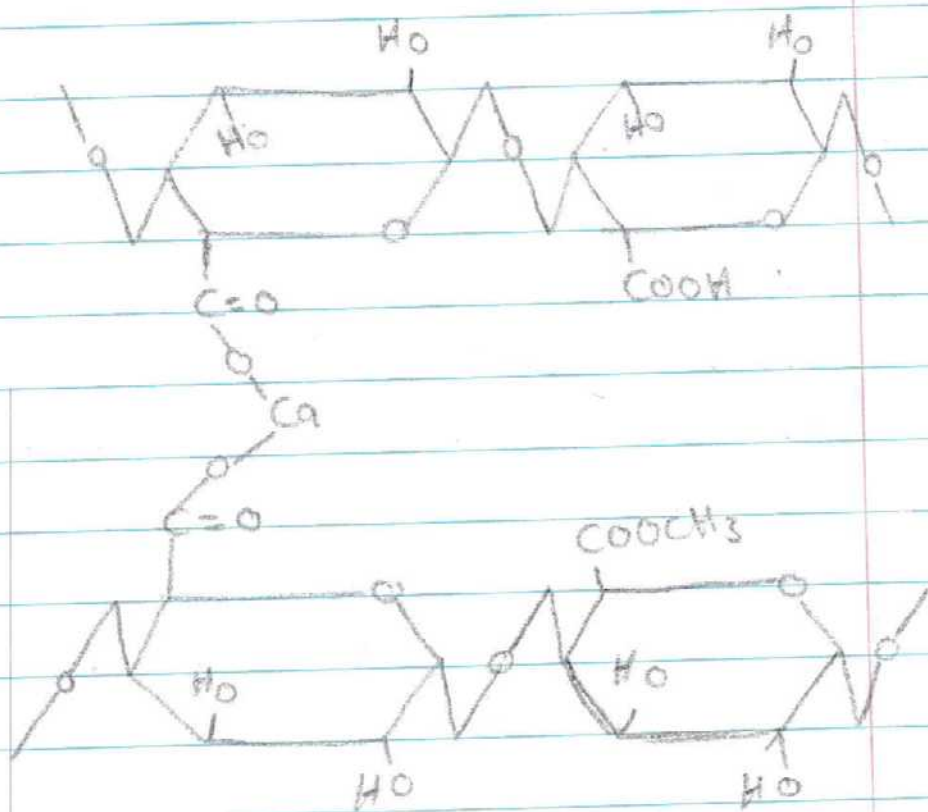 HO HO
HO HO
O O O
O O
C=O COOH
O
Ca
O
C=O COOCH3
O O
O O O
HO HO
HO HO